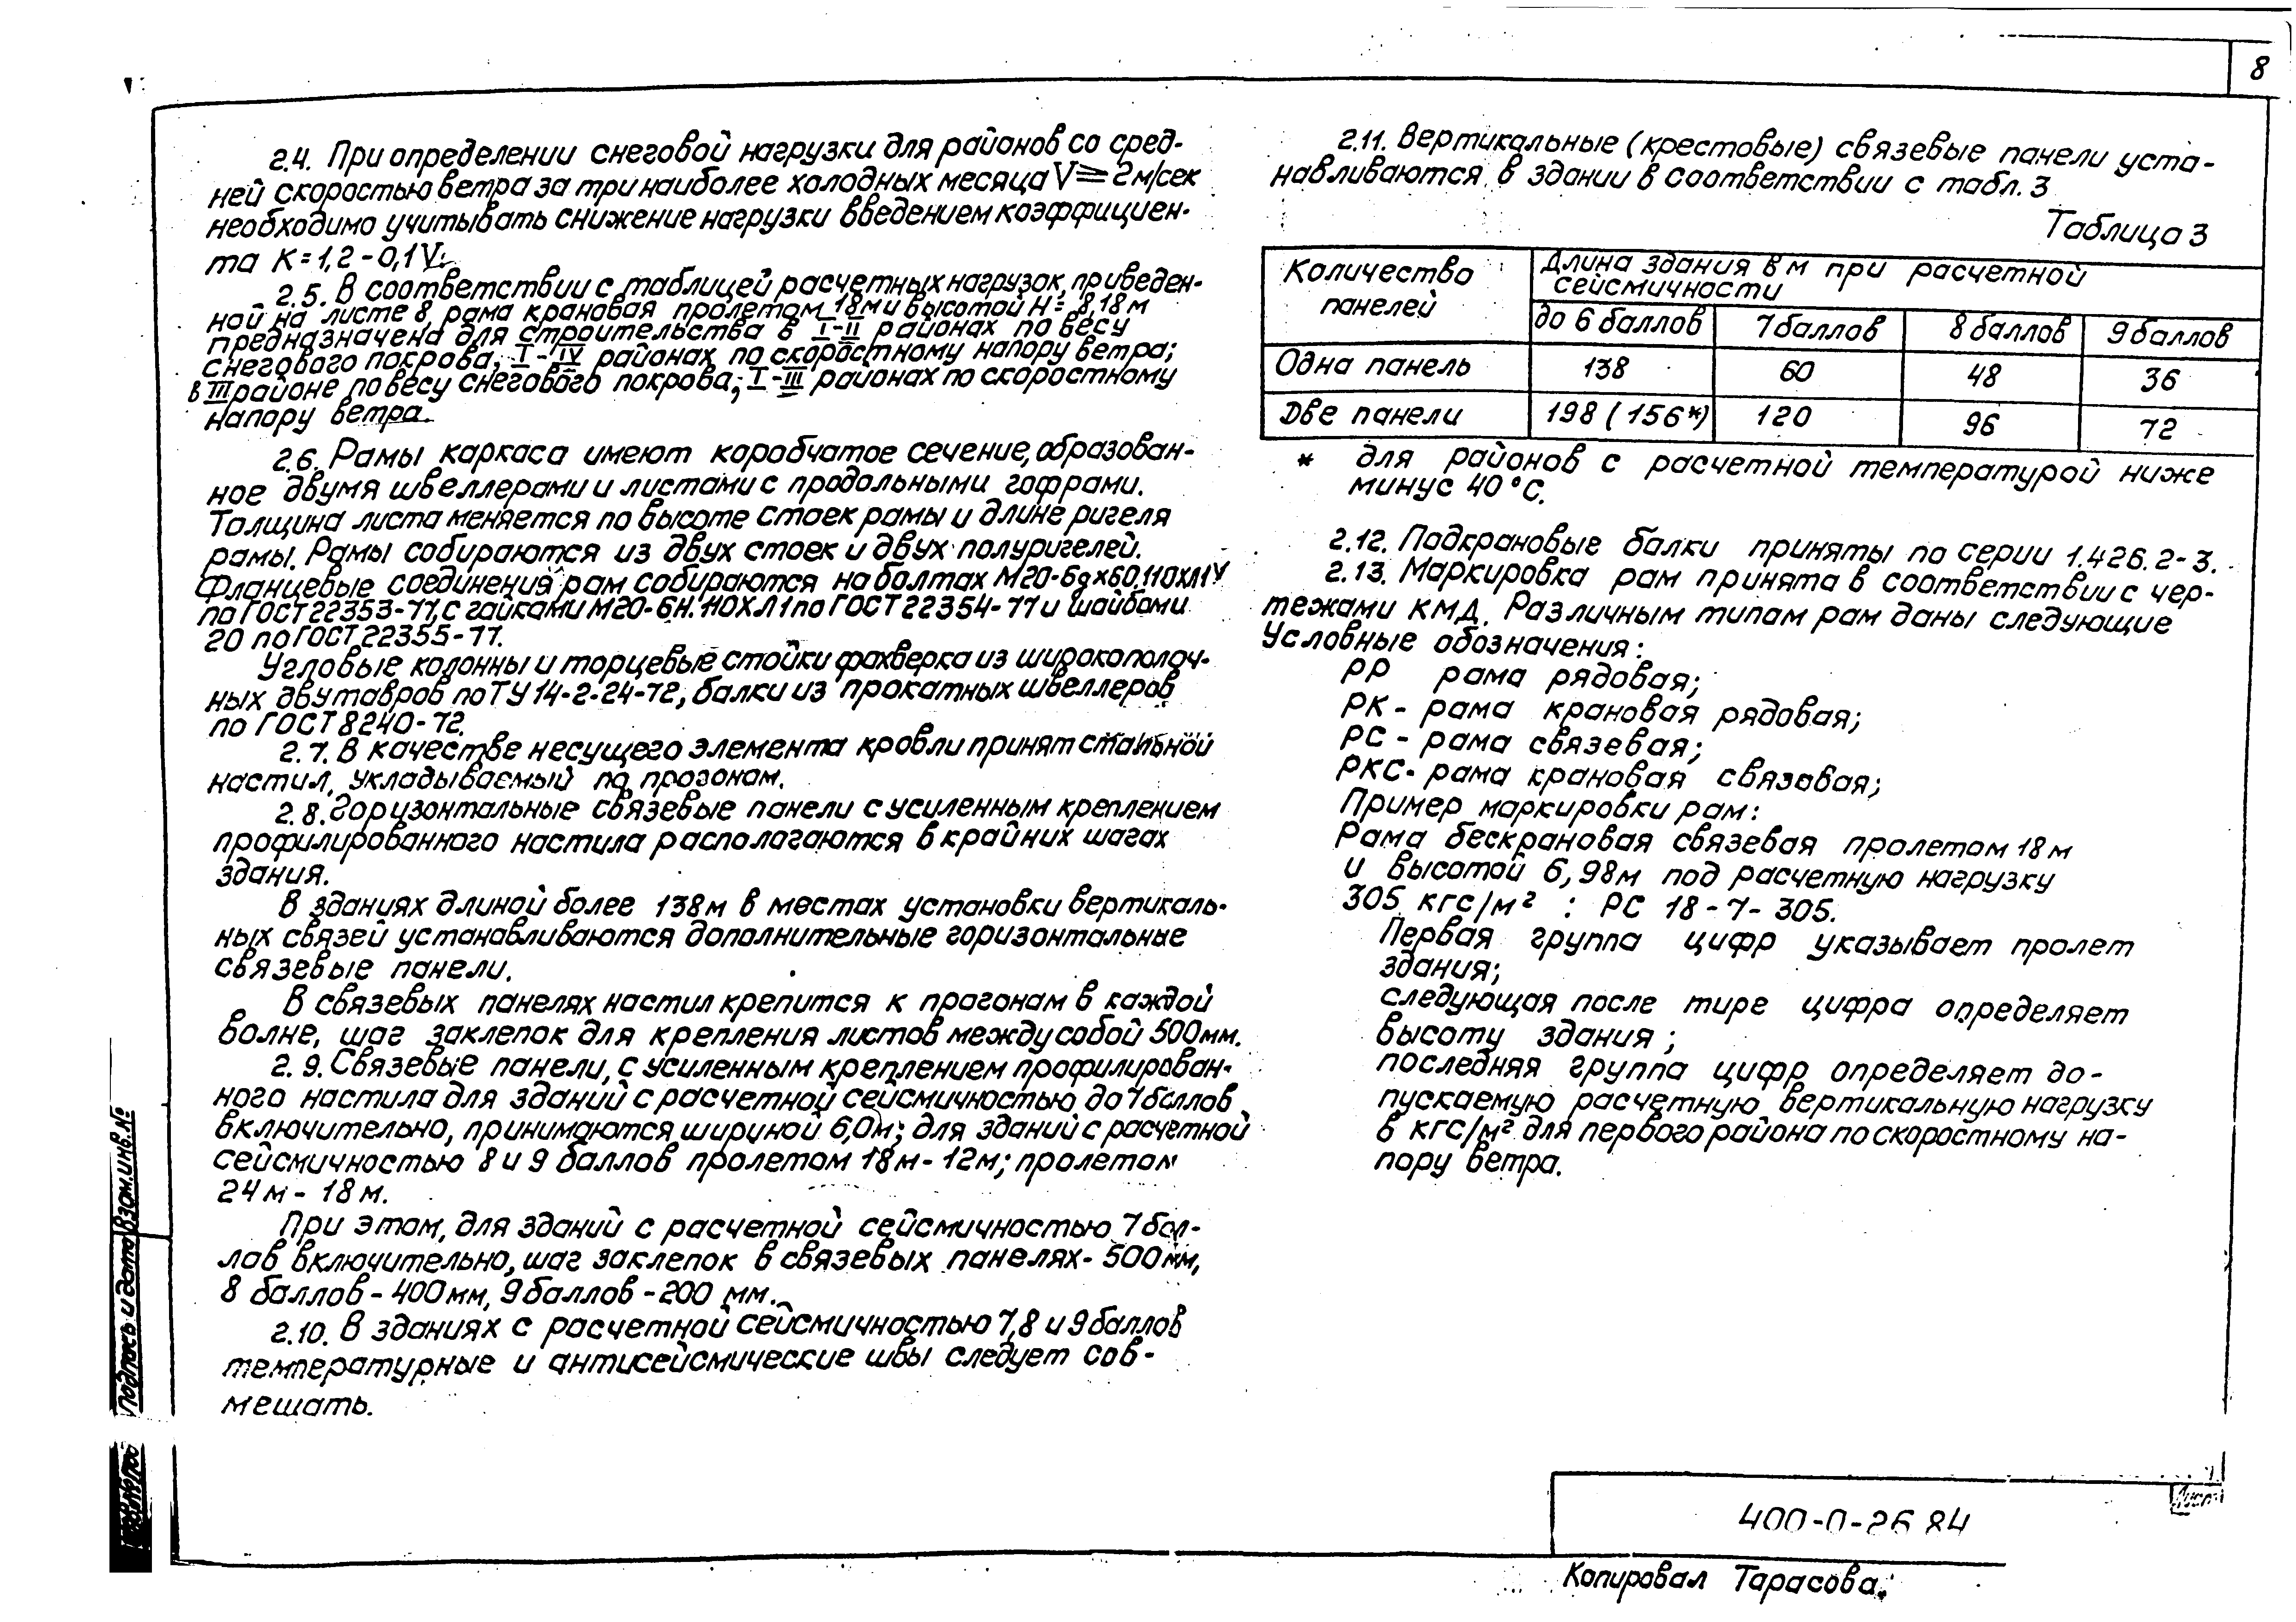 8
2.4. При определении снеговой нагрузки для районов со сред-
ней скоростью ветра за три наиболее холодных месяца V ⩾ 2м/сек
необходимо учитывать снижение нагрузки введением коэффициен-
та K=1,2-0,1V.
2.5. В соответствии с таблицей расчетных нагрузок, приведен-
ной на листе 8 рама крановая пролетом 18м и высотой H= 8,18м
предназначена для строительства в I-II районах по весу
снегового покрова, I-IV районах по скоростному напору ветра;
в III районе по весу снегового покрова, I-III районах по скоростному
напору ветра.
2.6. Рамы каркаса имеют коробчатое сечение, образован-
ное двумя швеллерами и листами с продольными гофрами.
Толщина листа меняется по высоте стоек рамы и длине ригеля
рамы. Рамы собираются из двух стоек и двух полуригелей.
Фланцевые соединения рам собираются на болтах М20-6gх60.110ХЛ1У
по ГОСТ 22353-77, с гайками М20-6Н.110Х.Л1 по ГОСТ 22354-77 и шайбами
20 по ГОСТ 22355-77.
Угловые колонны и торцевые стойки фахверка из широкополоч-
ных двутавров по ТУ 14-2-24-72, балки из прокатных швеллеров
по ГОСТ 8240-72.
2.7. В качестве несущего элемента кровли принят стальной
настил, укладываемый по прогонам.
2.8. Горизонтальные связевые панели с усиленным креплением
профилированного настила распологаются в крайних шагах
здания.
В зданиях длиной более 138м в местах установки вертикаль-
ных связей устанавливаются дополнительные горизонтальные
связевые панели.
В связевых панелях настил крепится к прогонам в каждой
волне, шаг заклепок для крепления листов между собой 500мм.
2.9. Связевые панели, с усиленным креплением профилирован-
ного настила для зданий с расчетной сейсмичностью до 7 баллов
включительно, принимаются шириной 6,0м; для зданий с расчетной
сейсмичностью 8 и 9 баллов пролетом 18м-12м; пролетом
24м-18м.
При этом, для зданий с расчетной сейсмичностью 7 бал-
лов включительно, шаг заклепок в связевых панелях-500мм,
8 баллов-400мм, 9 баллов-200 мм.
2.10. В зданиях с расчетной сейсмичностью 7,8 и 9 баллов
температурные и антисейсмические швы следует сов-
мещать.
2.11. Вертикальные (крестовые) связевые панели уста-
навливаются в здании в соответствии с табл. 3
Таблица 3
Количество панелей | Длина здания в м при расчетной сейсмичности
до 6 баллов | 7 баллов | 8 баллов | 9 баллов
Одна панель | 138 | 60 | 48 | 36
Две панели | 198 (156*) | 120 | 96 | 72
* для районов с расчетной температурой ниже
минус 40°С.
2.12. Подкрановые балки приняты по серии 1.426.2-3.
2.13. Маркировка рам принята в соответствии с чер-
тежами КМД. Различным типам рам даны следующие
Условные обозначения:
РР рама рядовая;
РК- рама крановая рядовая;
РС - рама связевая;
РКС- рама крановая связовая;
Пример маркировки рам:
Рама бескрановая связевая пролетом 18м
и высотой 6,98м под расчетную нагрузку
305 кгс/м² : РС 18-7-305.
Первая группа цифр указывает пролет
здания;
следующая после тире цифра определяет
высоту здания;
последняя группа цифр определяет до-
пускаемую расчетную вертикальную нагрузку
в кгс/м² для первого района по скоростному на-
пору ветра.
Взам.инв.№
Подпись и дата
400-0-26.84
Лист
Копировал Тарасова.